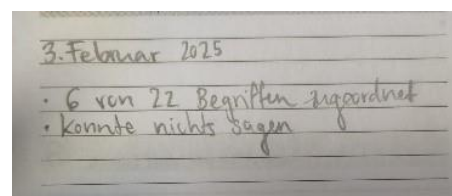 3. Februar 2025
· 6 von 22 Begriffen zugeordnet
· konnte nichts sagen